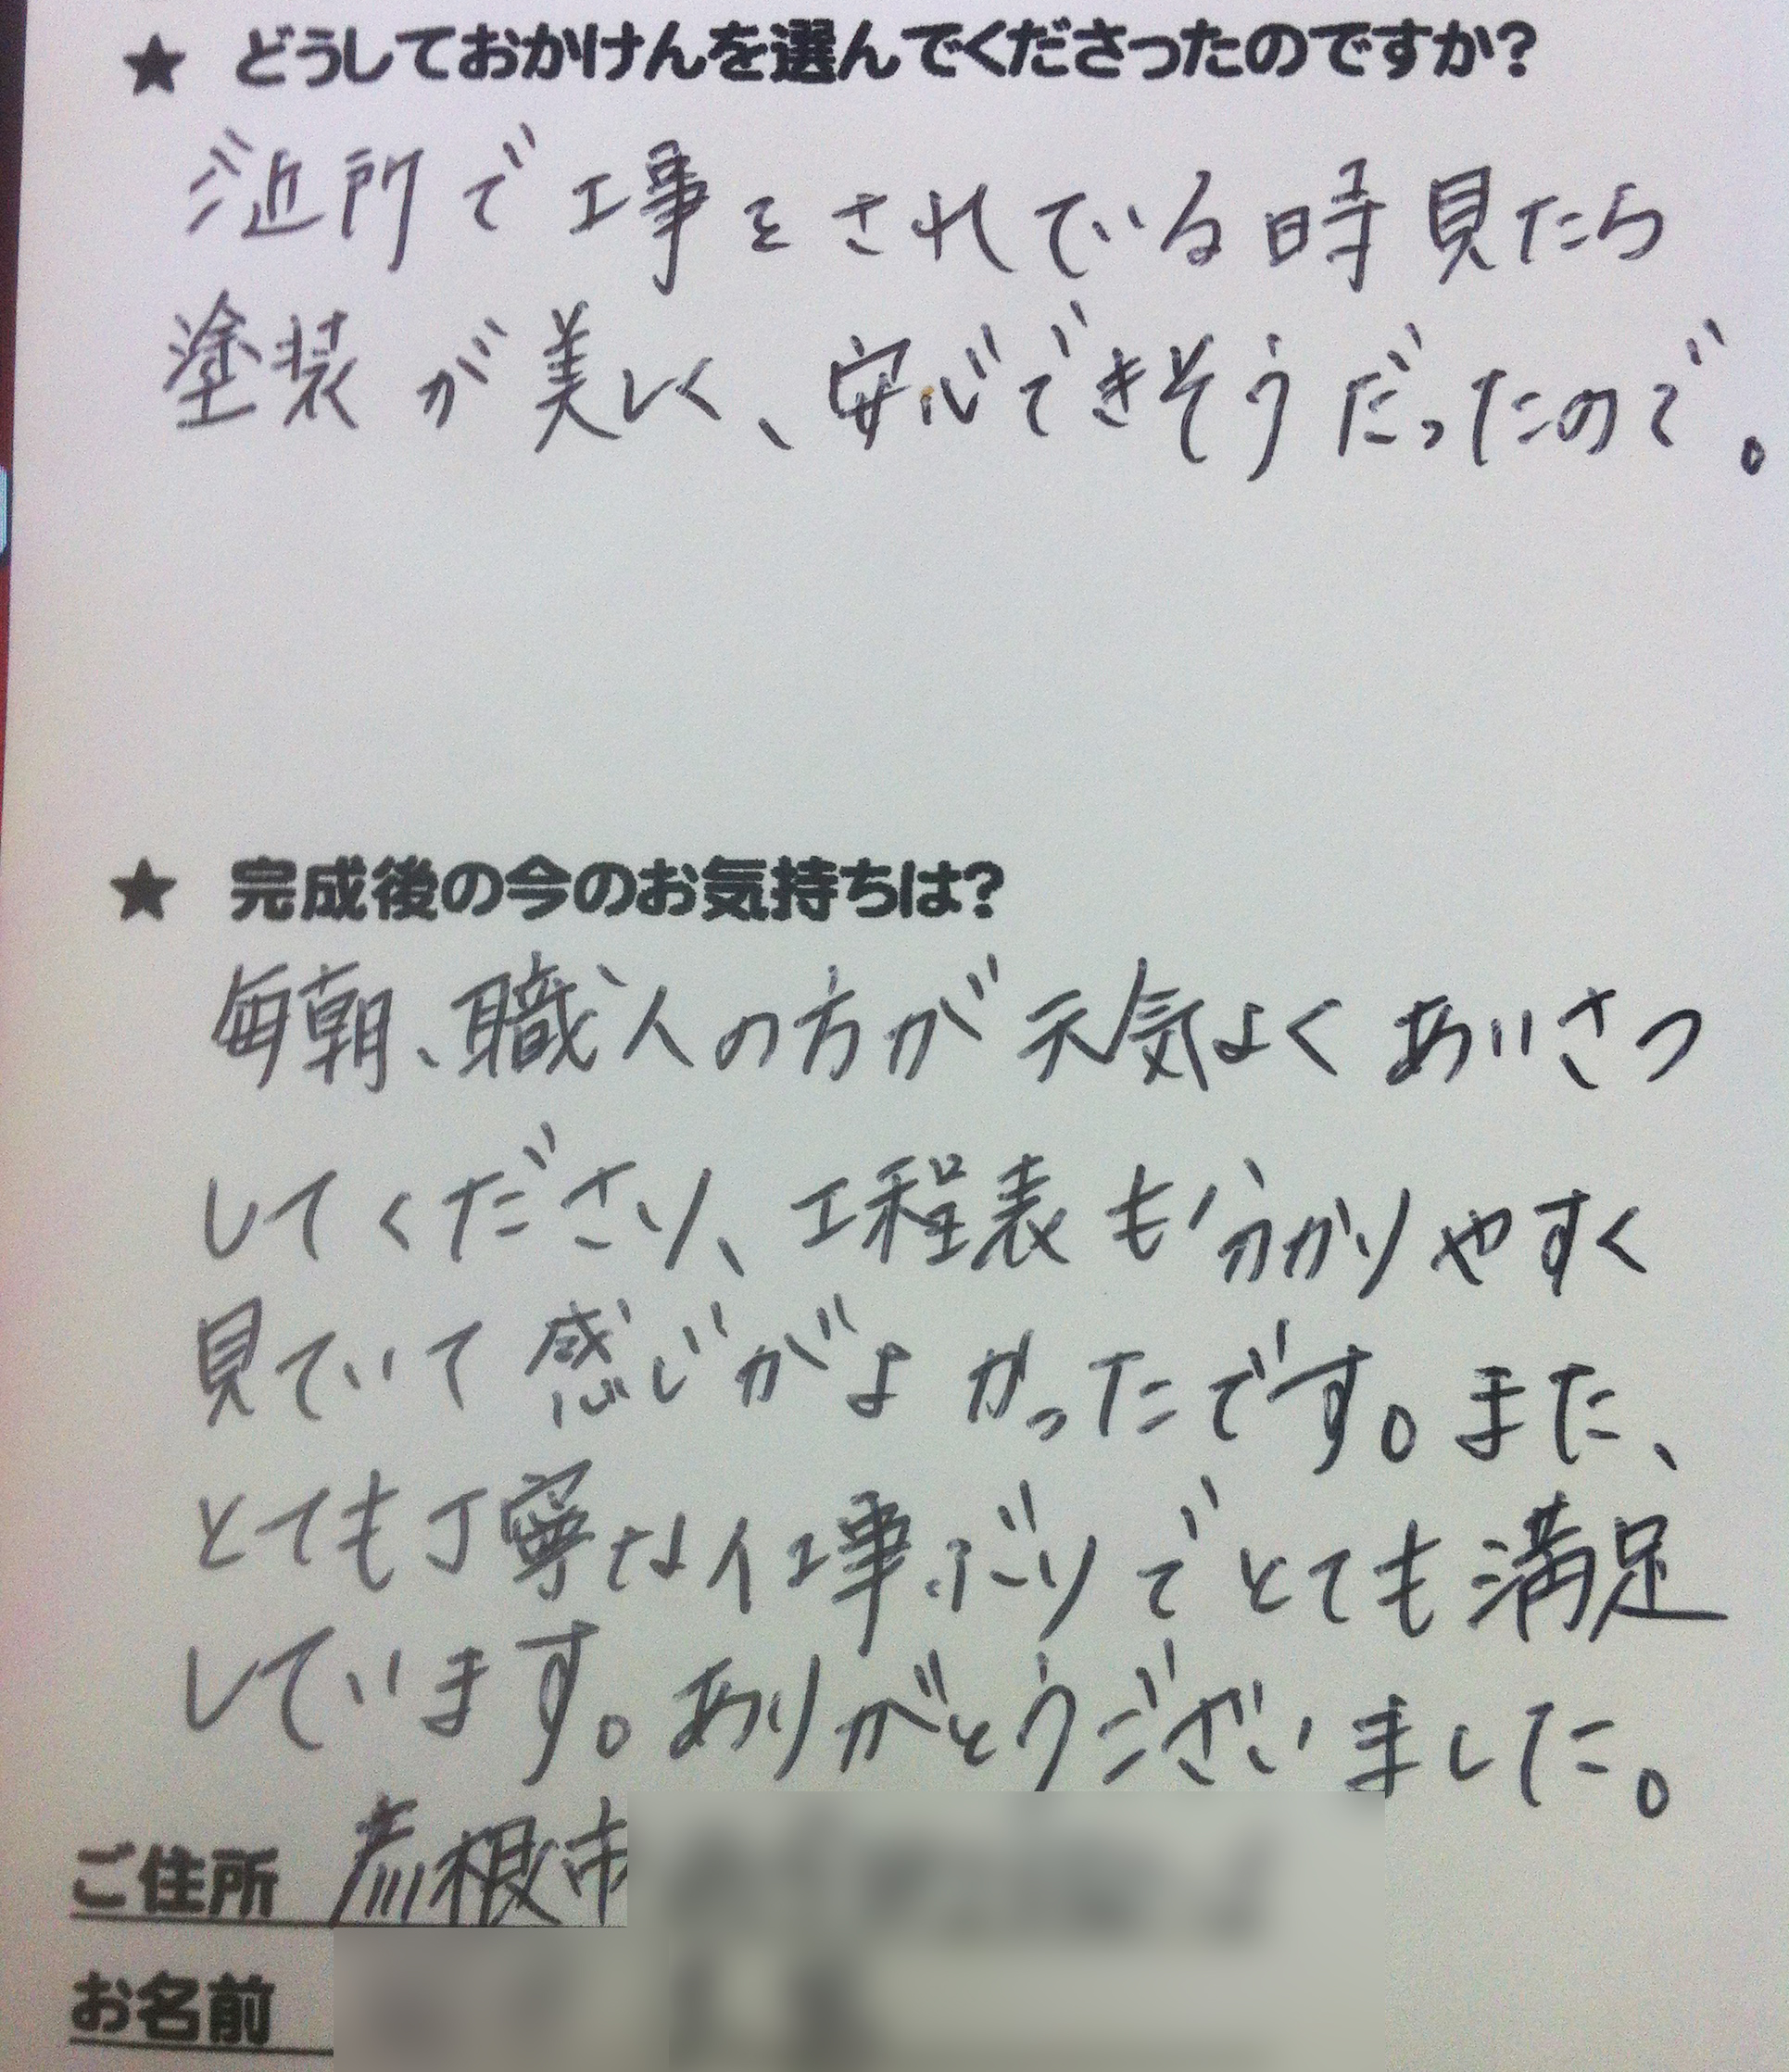 ★ どうしておかけんを選んでくださったのですか?
ご近所で工事をされている時見たら
塗装が美しく、安心できそうだったので。
★ 完成後の今のお気持ちは?
毎朝、職人の方が元気よくあいさつ
してくださり、工程表も分かりやすく
見ていて感じがよかったです。また、
とても丁寧な仕事ぶりでとても満足
しています。ありがとうございました。
ご住所 彦根市
お名前